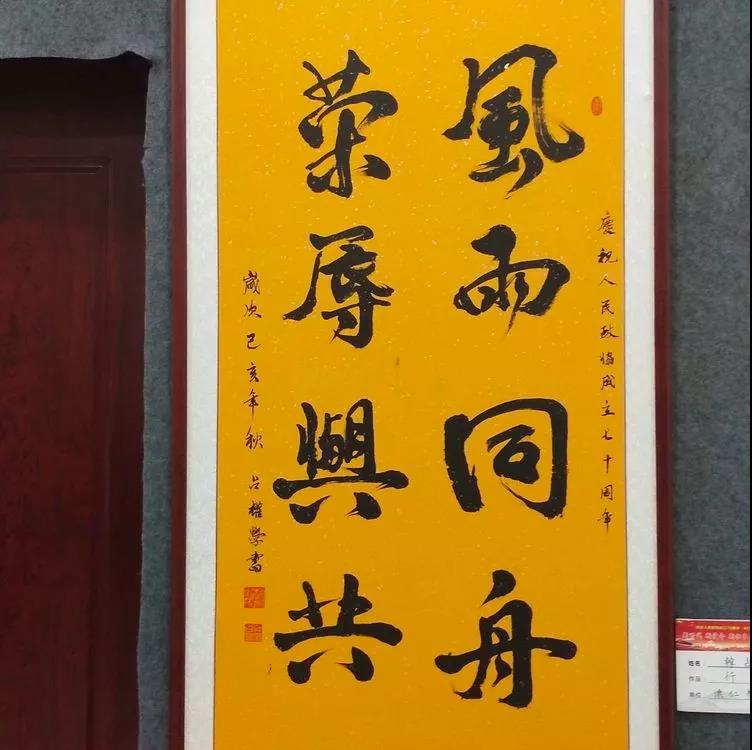 慶祝人民政協成立七十周年
風雨同舟
荣辱與共
歲次己亥年秋 吕權學書
姓名
作品 行
单位 懷仁